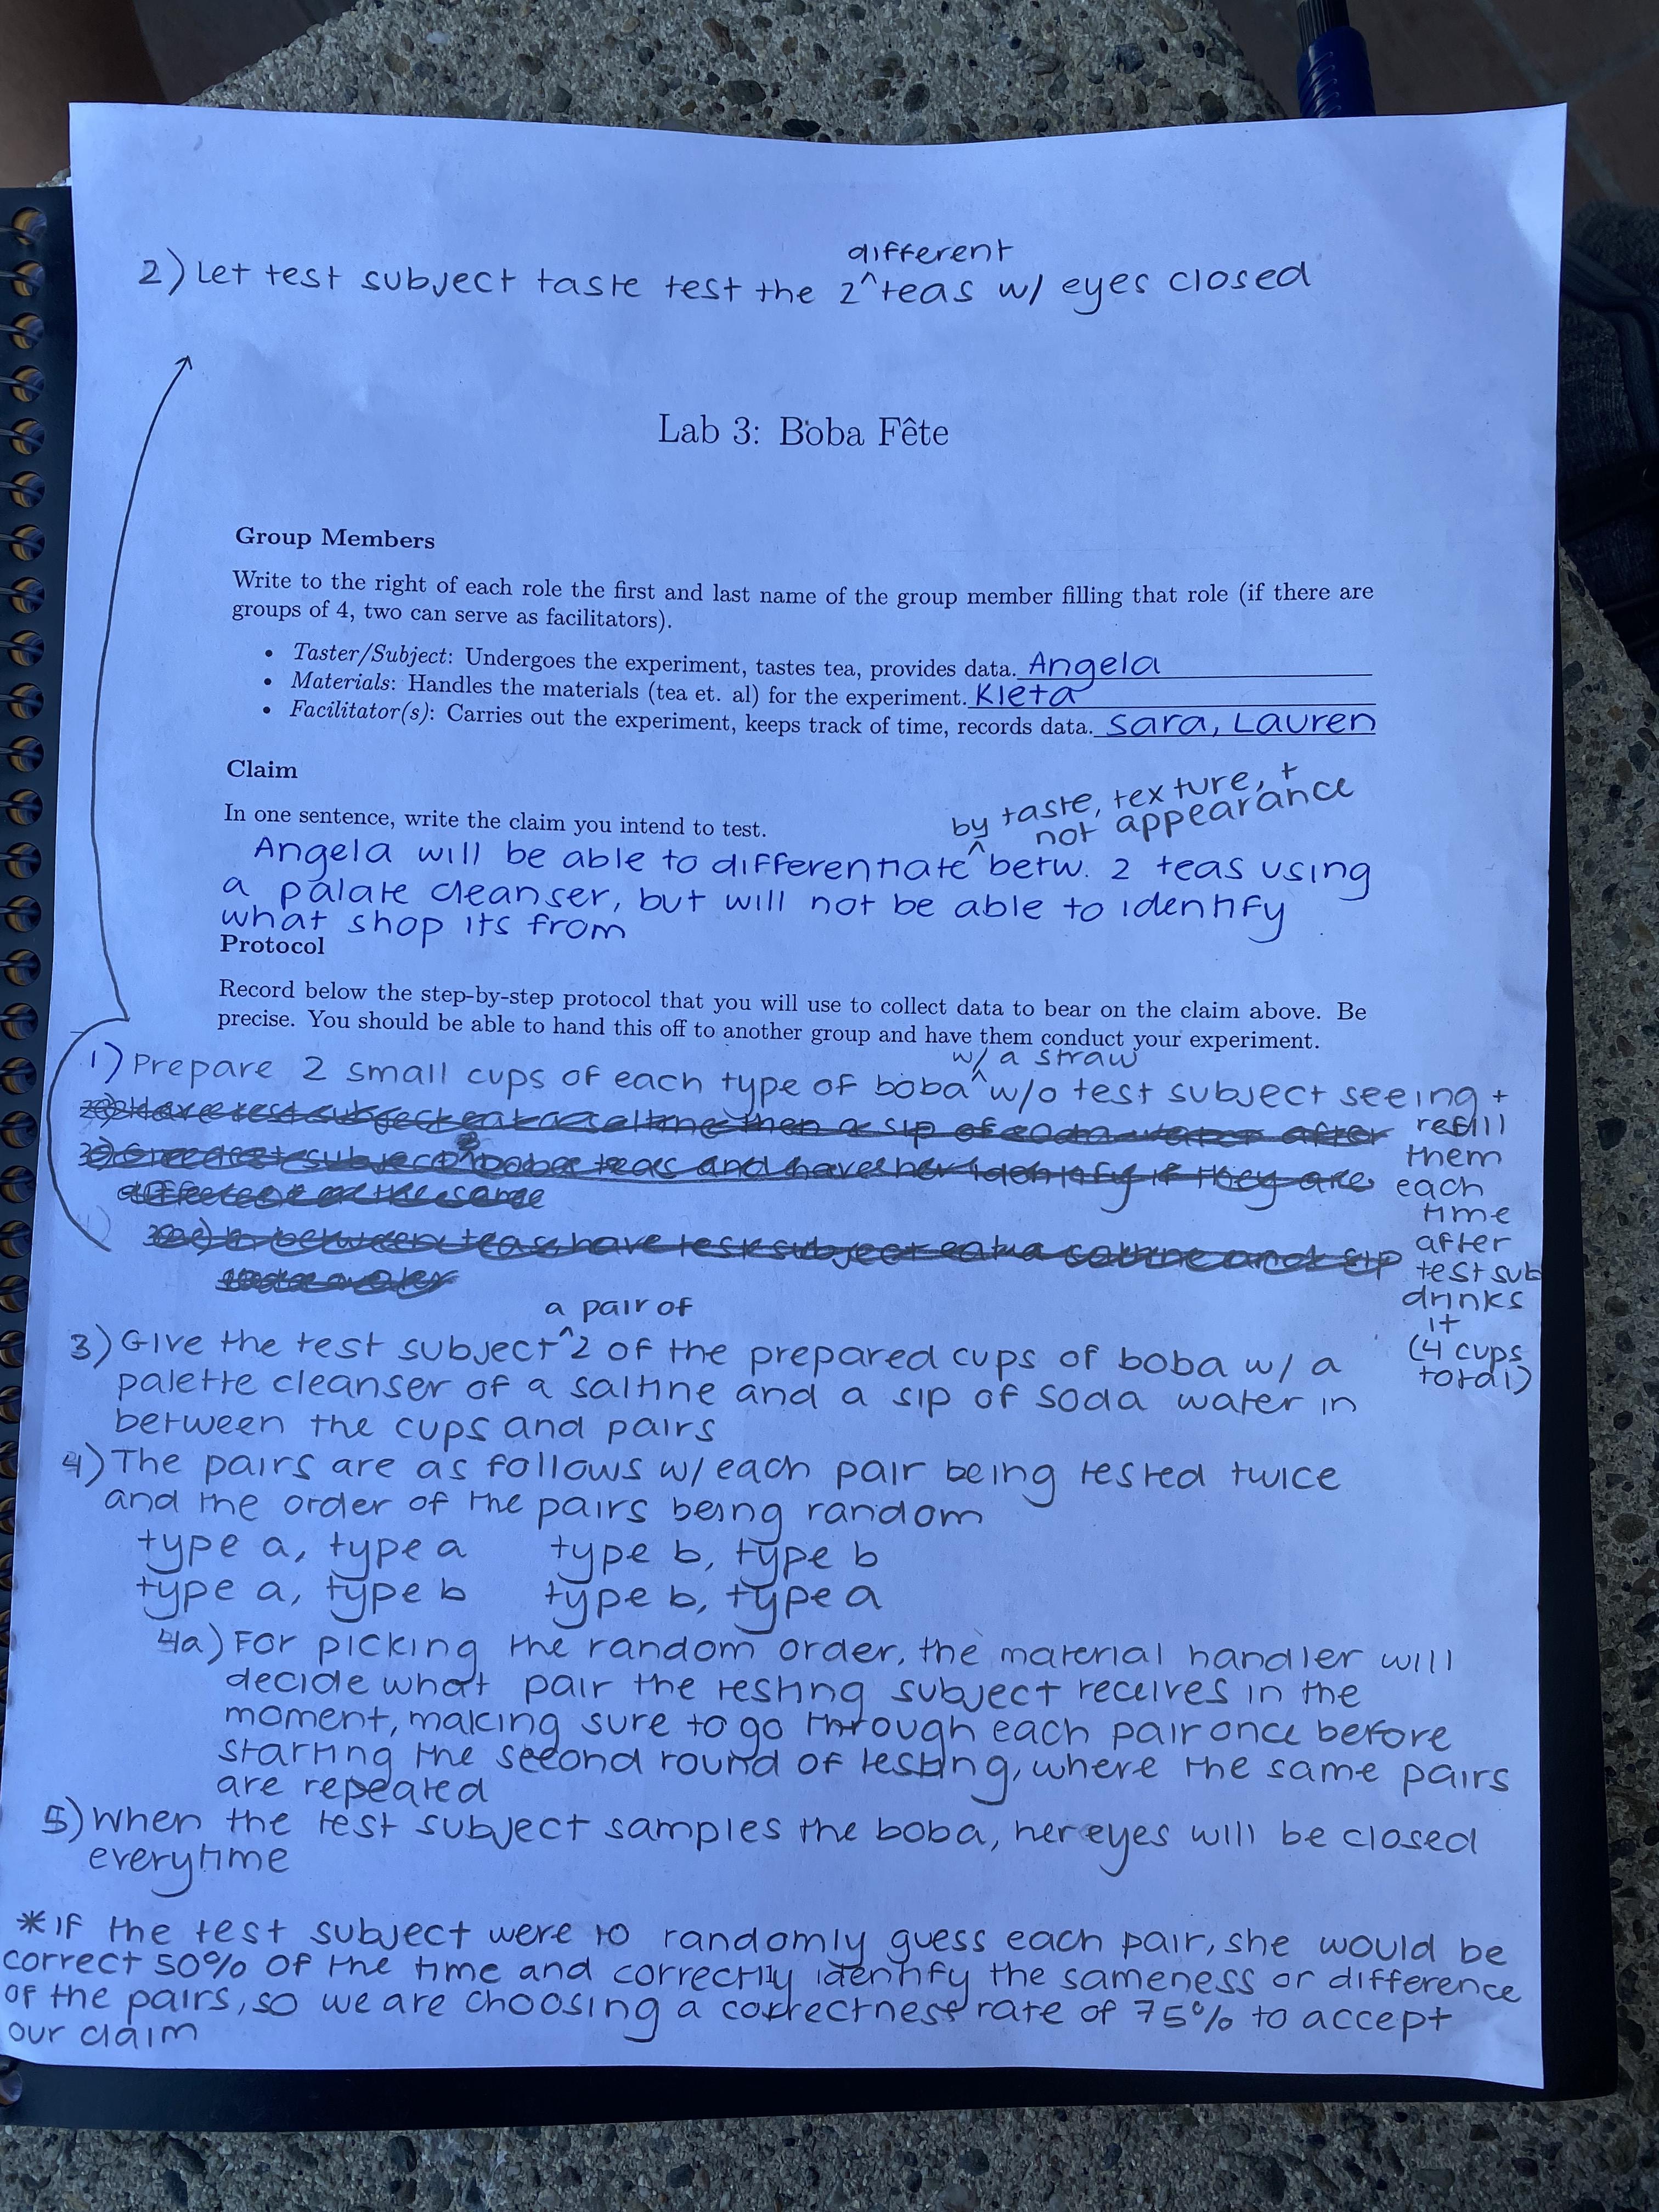 different
2) Let test subject taste test the 2^teas w/ eyes closed
Lab 3: Boba Fête
Group Members
Write to the right of each role the first and last name of the group member filling that role (if there are
groups of 4, two can serve as facilitators).
• Taster/Subject: Undergoes the experiment, tastes tea, provides data. Angela
• Materials: Handles the materials (tea et. al) for the experiment. Kleta
• Facilitator(s): Carries out the experiment, keeps track of time, records data. Sara, Lauren
Claim
In one sentence, write the claim you intend to test.
by taste, texture, +
not appearance
Angela will be able to differentiate ^ betw. 2 teas using
a palate cleanser, but will not be able to identify
what shop its from
Protocol
Record below the step-by-step protocol that you will use to collect data to bear on the claim above. Be
precise. You should be able to hand this off to another group and have them conduct your experiment.
w/ a straw
1) Prepare 2 small cups of each type of boba ^ w/o test subject seeing +
refill
them
each
time
after
test sub
drinks
it
(4 cups
total)
2) Have test subject eat a saltine then a sip of soda water after
3) Feed test subject 2 boba teas and have her identify if they are
different or the same
in between teas, have test subject eat a saltine and sip
soda water
a pair of
3) Give the test subject ^ 2 of the prepared cups of boba w/ a
palette cleanser of a saltine and a sip of soda water in
between the cups and pairs
4) The pairs are as follows w/ each pair being tested twice
and the order of the pairs being random
type a, type a type b, type b
type a, type b type b, type a
4a) For picking the random order, the material handler will
decide what pair the testing subject receives in the
moment, making sure to go through each pair once before
starting the second round of testing, where the same pairs
are repeated
5) When the test subject samples the boba, her eyes will be closed
everytime
*If the test subject were to randomly guess each pair, she would be
correct 50% of the time and correctly identify the sameness or difference
of the pairs, so we are choosing a correctness rate of 75% to accept
our claim